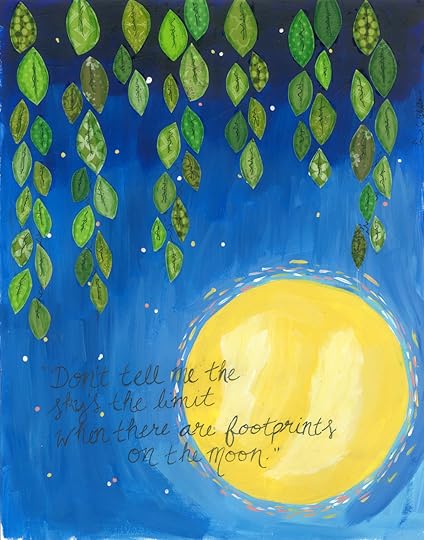 "Don't tell me the
sky's the limit
when there are footprints
on the moon."